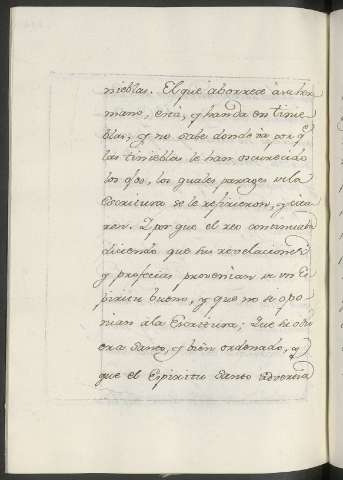 nieblas. El que aborrece à su her-
mano, está, y handa en tinie-
blas, y no sabe donde va, por q.^e
las tinieblas le han oscurecido
los ojos, los quales pasages de la
Escritura se le refirieron, y cita-
ron. Y por que el reo continuaba
diciendo que sus revelaciones
y profecias provenian de un Es-
piritu bueno, y que no se opo-
nian à la Escritura; Que
era Santo, y bien ordenado, y
que el Espiritu Santo